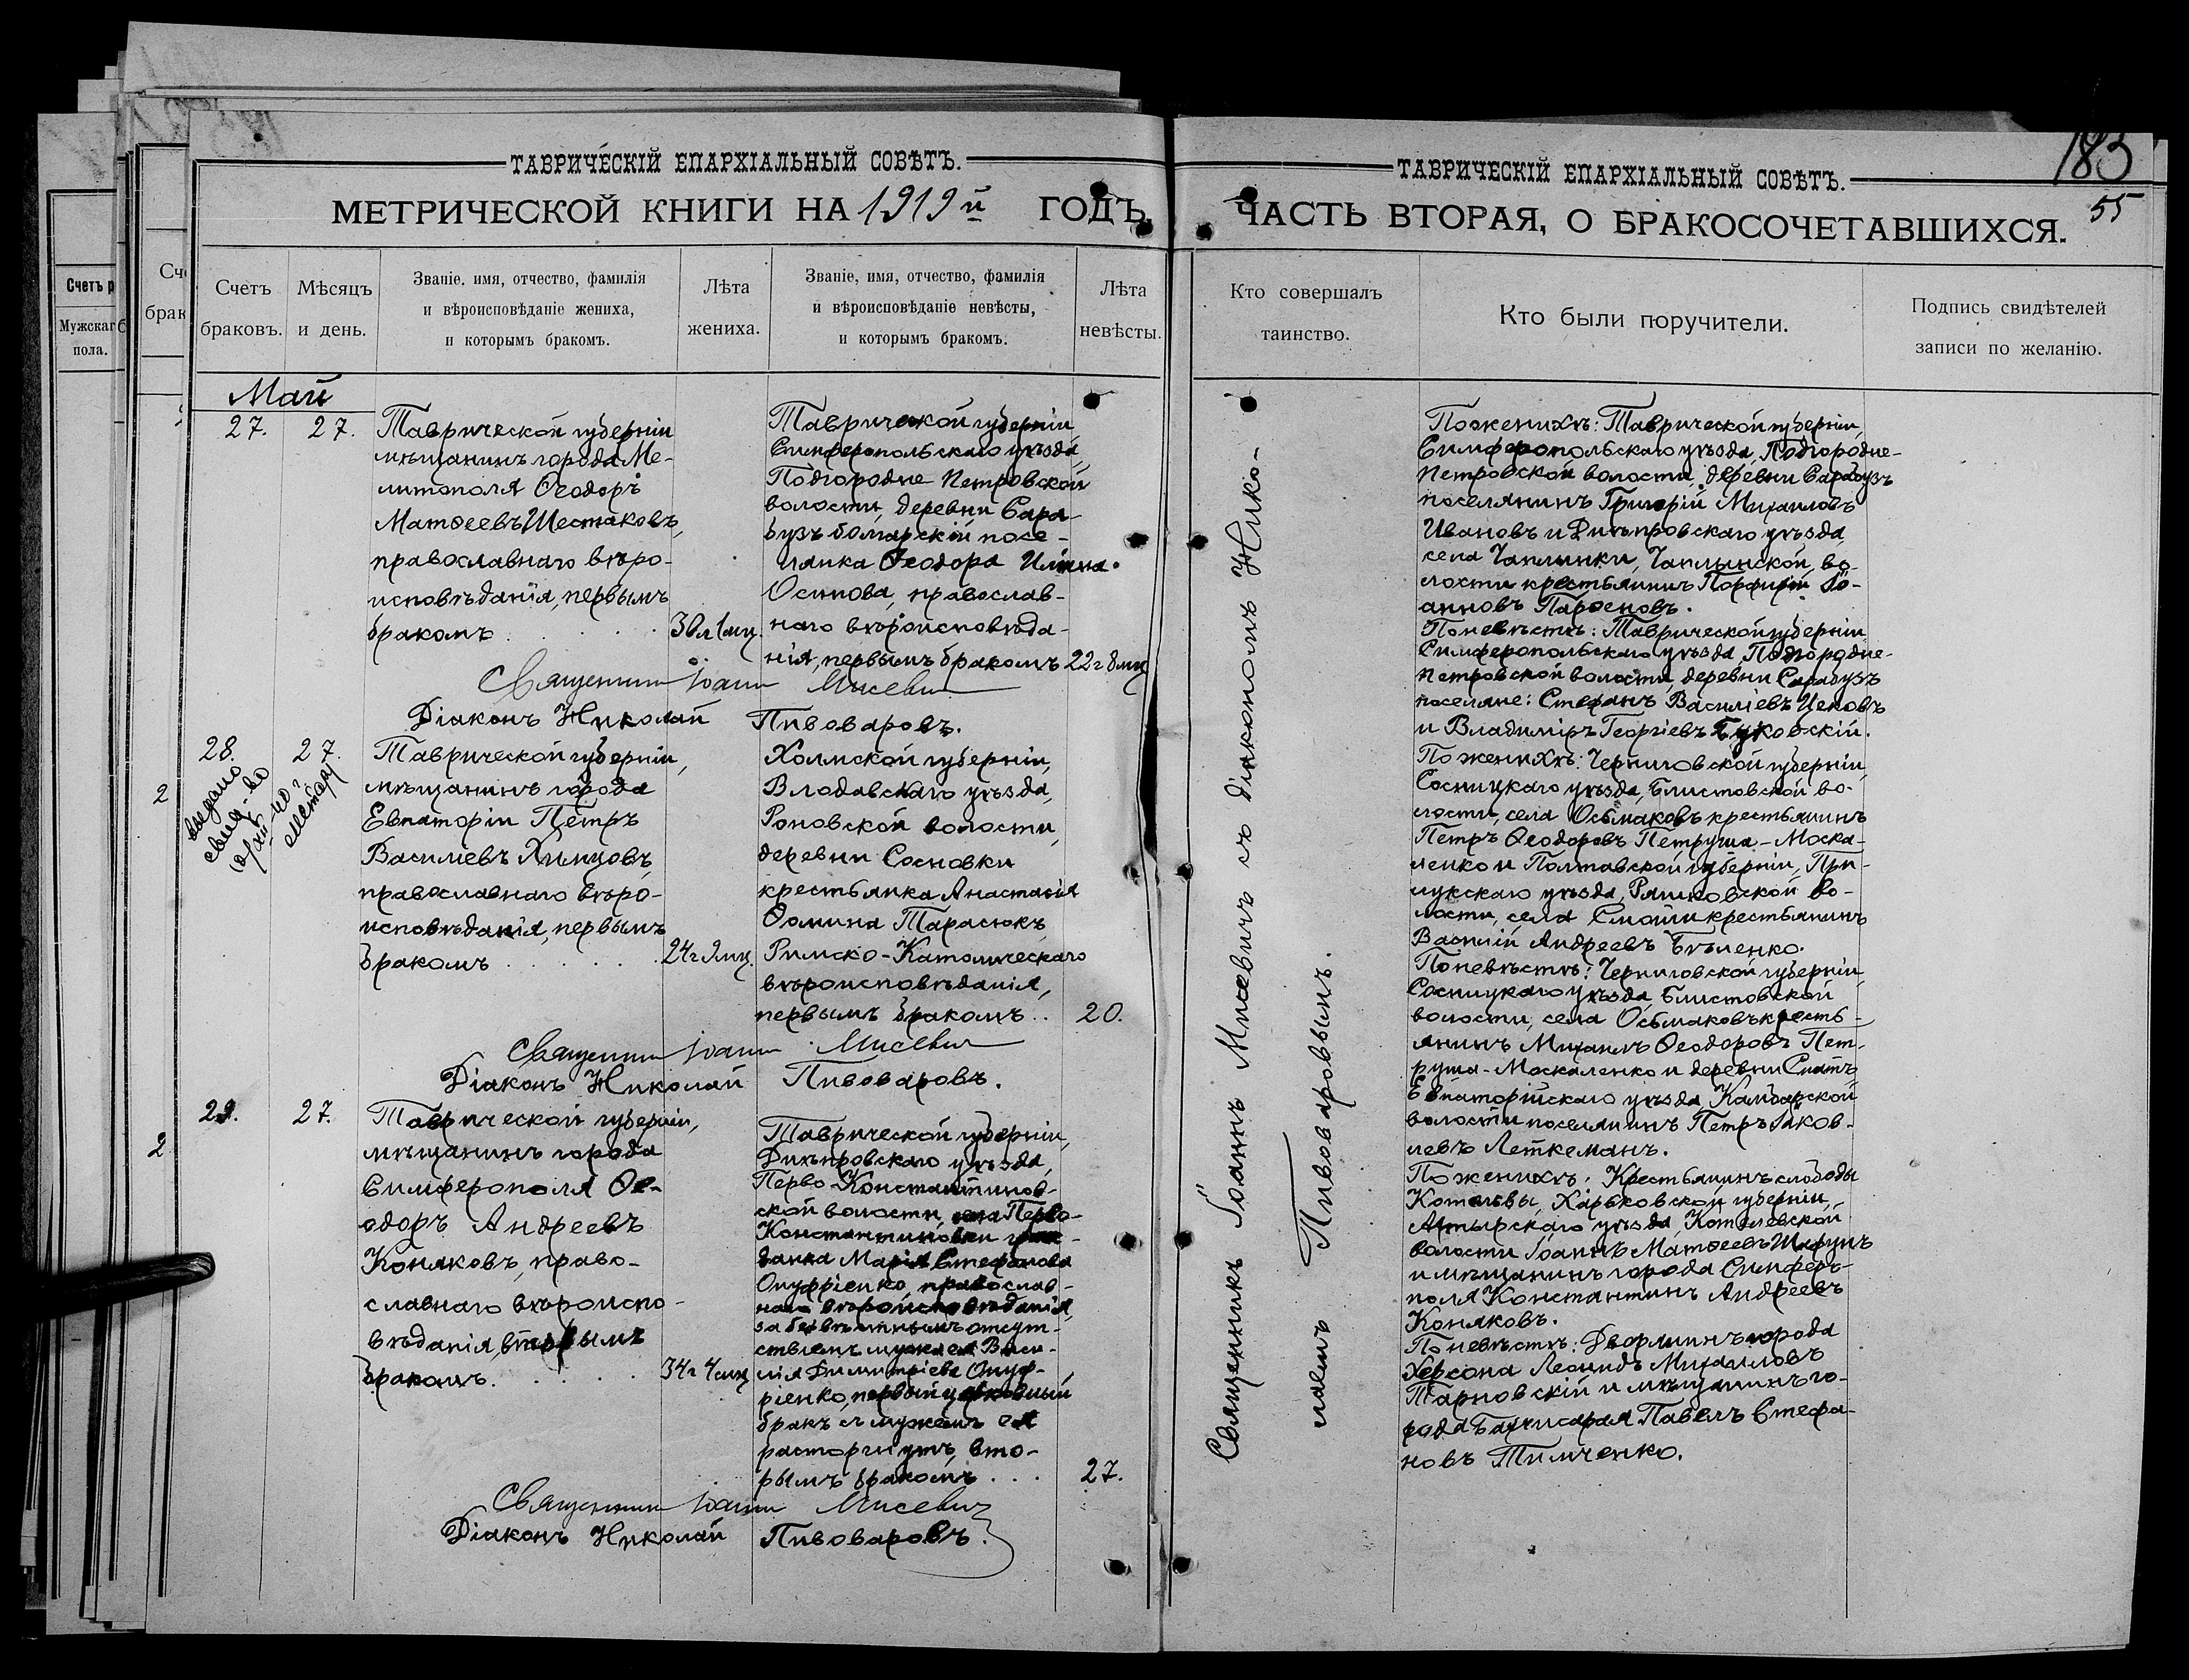 ТАВРИЧЕСКІЙ ЕПАРХІАЛЬНЫЙ СОВѢТЪ.
МЕТРИЧЕСКОЙ КНИГИ НА 1919й ГОДЪ,
Счетъ
браковъ.
Мѣсяцъ
и день.
Званіе, имя, отчество, фамилія
и вѣроисповѣданіе жениха,
и которымъ бракомъ.
Лѣта
жениха.
Званіе, имя, отчество, фамилія
и вѣроисповѣданіе невѣсты,
и которымъ бракомъ.
Лѣта
невѣсты.
Май
27.
27.
Таврической губерніи
мѣщанинъ города Ме-
литополя Ѳеодоръ
Матѳеевъ Шестаковъ,
православнаго вѣро-
исповѣданія, первымъ
бракомъ
30л 1 мц.
Таврической губерніи
Симферопольскаго уѣзда,
Подгородне Петровской
волости, деревни Сара-
бузъ болгарскій посе-
лянка Ѳеодора Ильина
Осипова, православ-
наго вѣроисповѣда-
нія, первымъ бракомъ
22г 8мц
Священник Іоанн Мисевич
Діаконъ Николай Пивоваровъ.
28.
27.
выдано
свид-во
местару
Таврической губерніи,
мѣщанинъ города
Евпаторіи Петръ
Василіевъ Химцовъ,
православнаго вѣро-
исповѣданія, первымъ
бракомъ
24г 9мц.
Холмской губерніи,
Влодавскаго уѣзда,
Роновской волости,
деревни Сосновки
крестьянка Анастасія
Ѳомина Тарасюкъ,
Римско-Католическаго
вѣроисповѣданія,
первымъ бракомъ..
20.
Священник Іоанн Мисевич
Діаконъ Николай Пивоваровъ.
29.
27.
Таврической губерніи,
мѣщанинъ города
Симферополя Ѳе-
одоръ Андреевъ
Коняковъ, право-
славнаго вѣроиспо-
вѣданія, вторымъ
бракомъ.
34г 4мц
Таврической губерніи,
Днѣпровскаго уѣзда,
Перво-Константинов-
ской волости, села Перво-
Константиновки граж-
данка Марія Стефанова
Онуфріенко, православ-
наго вѣроисповѣданія,
за безвѣстнымъ отсут-
ствіемъ мужа ея Васи-
лія Димитріева Онуф-
ріенко, первый церковный
бракъ съ мужемъ ея
расторгнутъ, вто-
рымъ бракомъ ...
27.
Священник Іоанн Мисевич
Діаконъ Николай Пивоваровъ.
183
55
ТАВРИЧЕСКІЙ ЕПАРХІАЛЬНЫЙ СОВѢТЪ.
ЧАСТЬ ВТОРАЯ, О БРАКОСОЧЕТАВШИХСЯ.
Кто совершалъ
таинство.
Кто были поручители.
Подпись свидѣтелей
записи по желанію.
Священникъ Іоаннъ Мисевичъ съ діакономъ Нико-
лаемъ Пивоваровымъ.
По женихѣ: Таврической губерніи,
Симферопольскаго уѣзда, Подгородне-
Петровской волости, деревни Сарабузъ
поселянинъ Григорій Михаиловъ
Ивановъ и Днѣпровскаго уѣзда,
села Чаплинки, Чаплынской, во-
лости крестьянинъ Порфирій Іо-
анновъ Парѳеновъ.
По невѣстѣ: Таврической губерніи
Симферопольскаго уѣзда, Подгородне-
Петровской волости, деревни Сарабузъ
поселяне: Стефанъ Василіевъ Цековъ
и Владиміръ Георгіевъ Буковскій.
По женихѣ: Черниговской губерніи,
Сосницкаго уѣзда, Блистовской во-
лости, села Осьмаковъ крестьянинъ
Петръ Ѳеодоровъ Петруша-Моска-
ленко и Полтавской губерніи, При-
лукскаго уѣзда, Ряшковской во-
лости, села Смоши крестьянинъ
Василій Андреевъ Бѣленко.
По невѣстѣ: Черниговской губерніи,
Сосницкаго уѣзда, Блистовской
волости, села Осьмаковъ кресть-
янинъ Михаилъ Ѳеодоровъ Пет-
руша-Москаленко и деревни Сиатъ
Евпаторійскаго уѣзда Камбарской
волости поселянинъ Петръ Іаков-
левъ Леткеманъ.
По женихѣ: Крестьянинъ слободы
Котельвы, Харьковской губерніи,
Ахтырскаго уѣзда Котелевской
волости Іоаннъ Матѳеевъ Шарунъ
и мѣщанинъ города Симферо-
поля Константинъ Андреевъ
Коняковъ.
По невѣстѣ: Дворянинъ города
Херсона Леонидъ Михаиловъ
Тарновскій и мѣщанинъ го-
рода Бахчисарая Павелъ Стефа-
новъ Тимченко.
Счетъ р
Мужскаг
пола.
брак
2
2